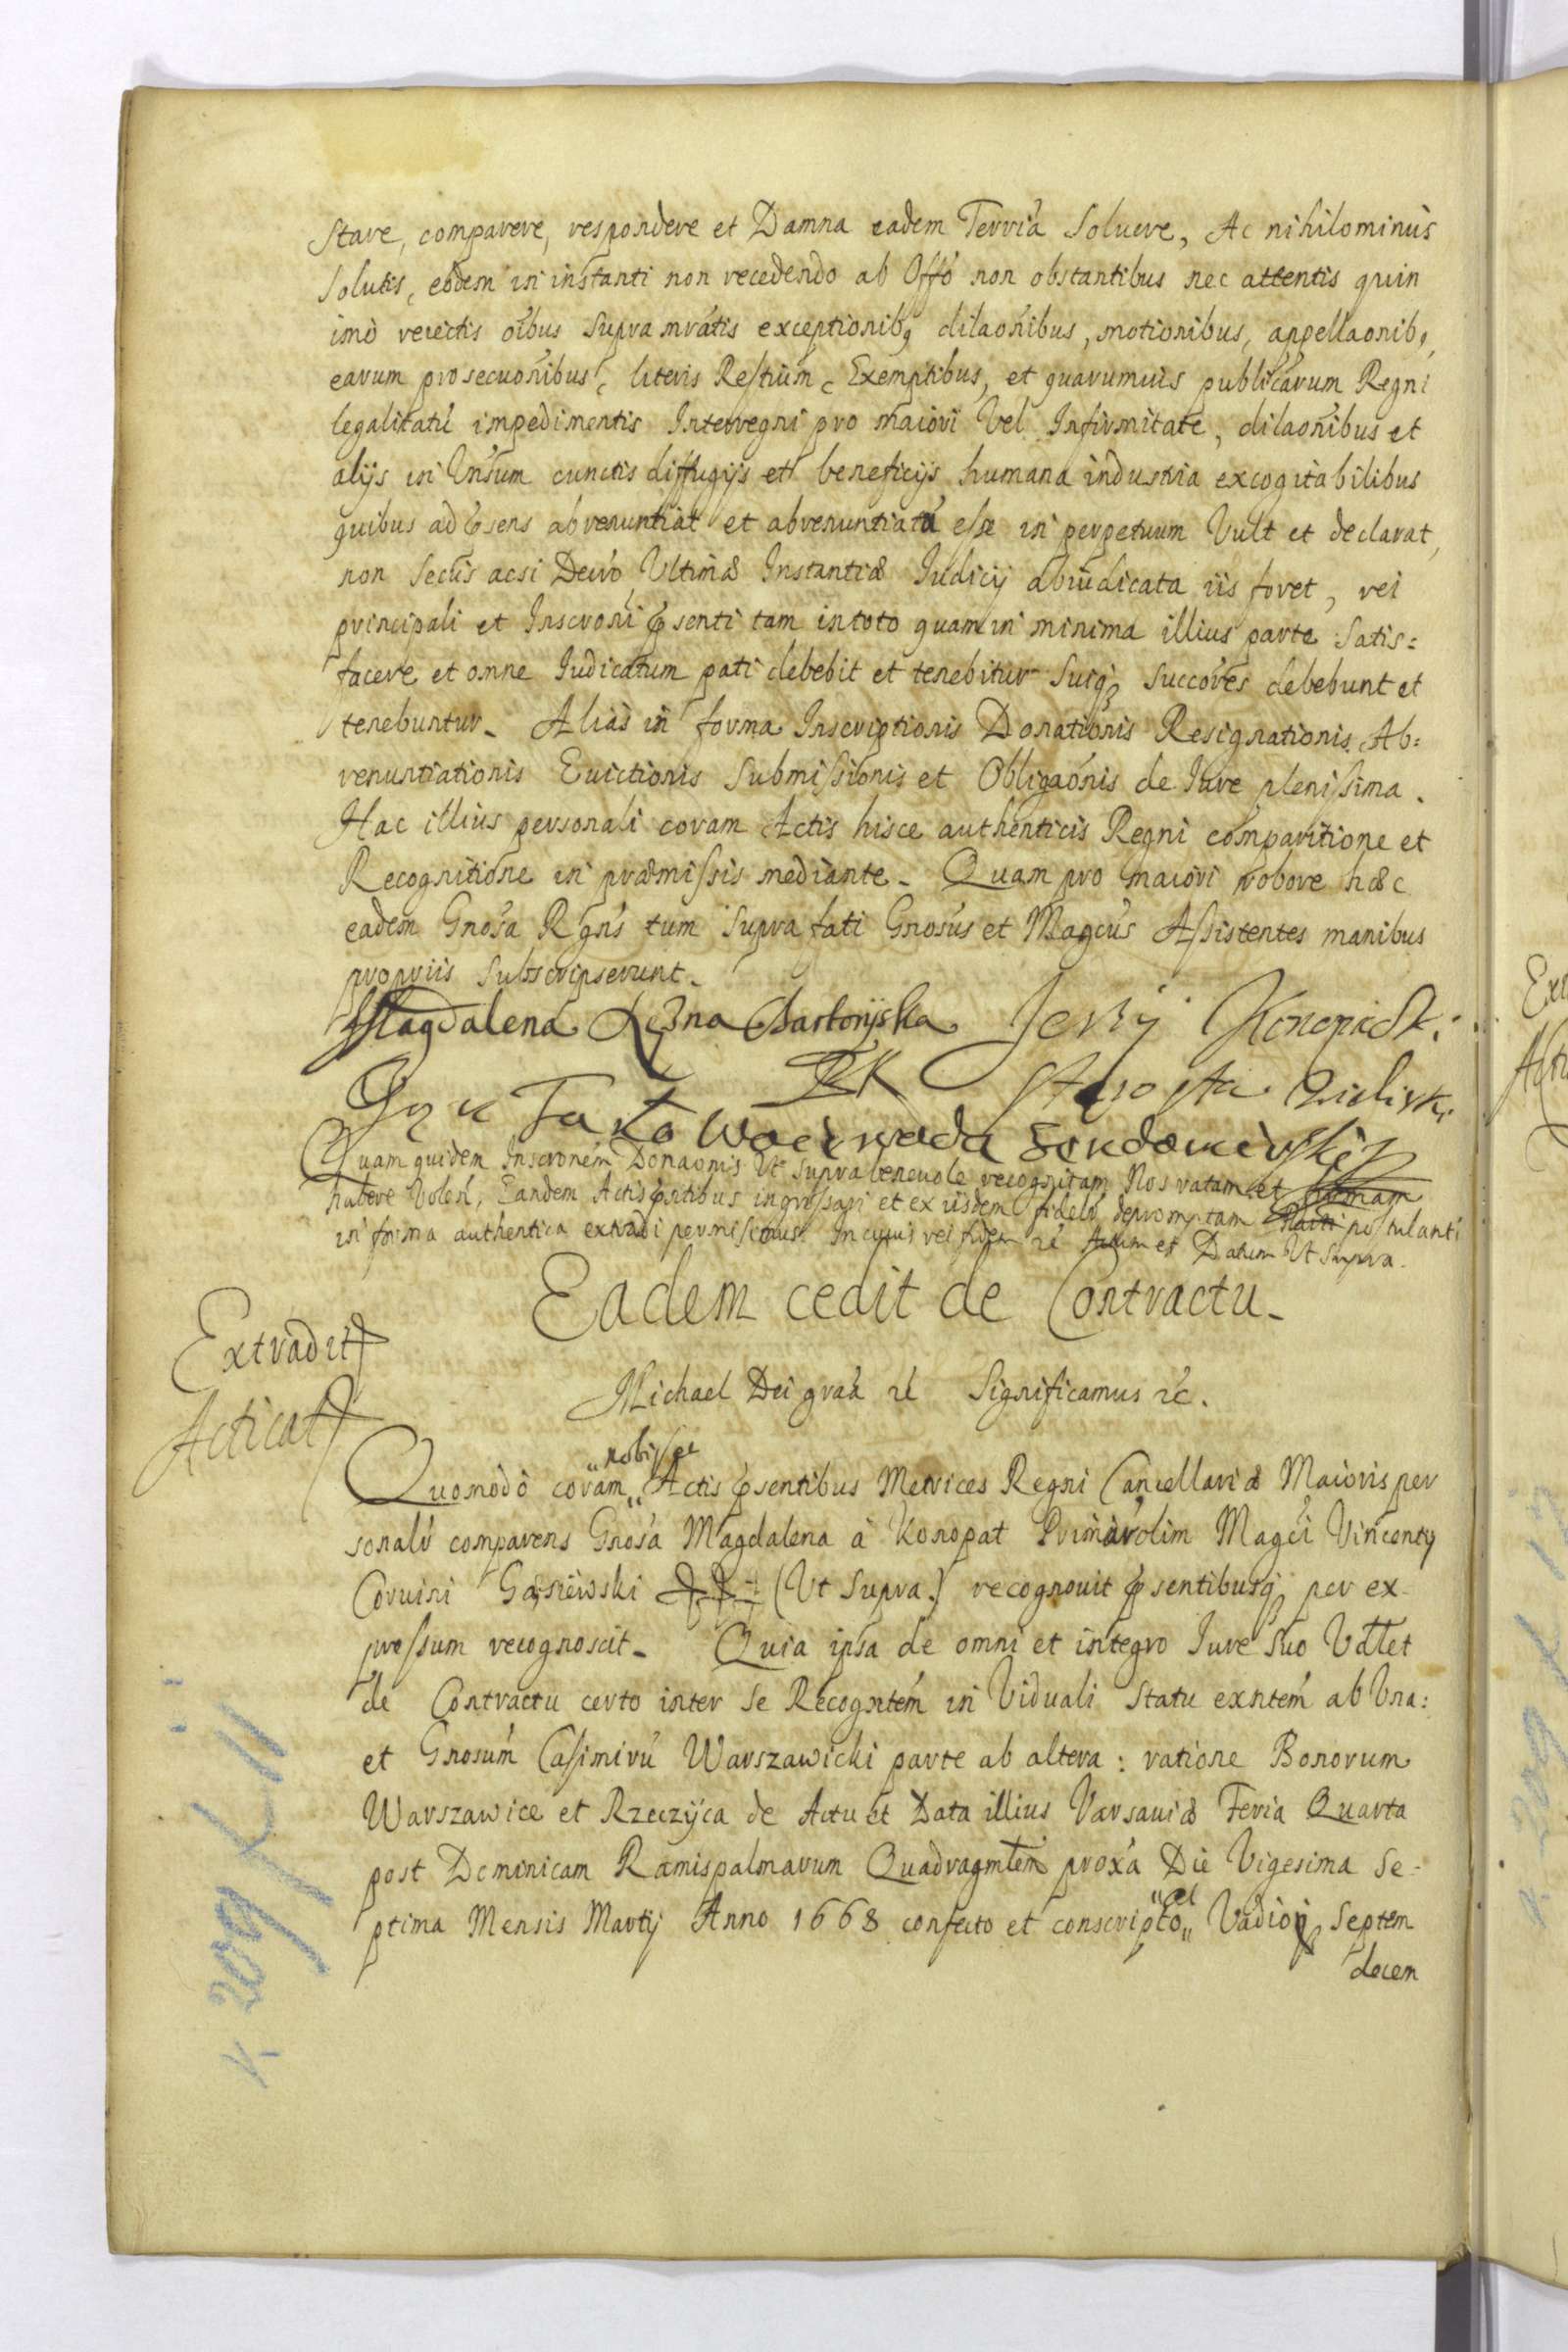 Stare, comparere, respondere et Damna eadem Terria Soluere, Ac nihilominus
solutis, eodem in instanti non recedendo ab Offo non obstantibus nec attentis quin
imo reiectis oibus supra nratis exceptionibq dilaonibus, motionibus, appellaonibq,
earum prosecuonibus, literis Restium, Exemptibus, et quarumuis publicarum Regni
legalitatu impedimentis Interregni pro maiori Vel Infirmitate, dilaonibus et
alijs in Unsum cunctis diffugijs et beneficijs humana industria excogitabilibus
quibus ad psens abrenuntiat et abrenuntiatu esse in perpetuum Vult et declarat,
non secus acsi Decro Ultimæ Instantiæ Iudicij abiudicata iis foret, rei
principali et Inscroni psenti tam in toto quam in minima illius parte Satis=
facere et omne Iudicatum pati debebit et tenebitur Suiq Succores debebunt et
tenebuntur. Alias in forma Inscriptionis Donationis Resignationis Ab=
renuntiationis Euictionis Submissionis et Obligaonis de Iure plenissima.
Hac illius personali coram Actis hisce authenticis Regni comparitione et
Recognitione in præmissis mediante. Quam pro maiori robore hæc
eadem Gnosa Rgns tum supra fati Gnosus et Magcus Assistentes manibus
propriis subscripserunt.
Magdalena Xzna Czartoryska Jerzy Konopacki
Starosta
Jako Woiewoda Sendomirski
Quam quidem Inscronem Donaonis Ut supra beneuole recognitam Nos ratam et firmam
habere Volen, Eandem Actis pntibus ingrossari et ex iisdem fidelr depromptam Parti postulanti
in forma authentica extradi permisimus. In cuius rei fidem rc Actum et Datum Ut supra.
Eadem cedit de Contractu.
Extradit
Acticat
Michael Dei graa rc Significamus rc.
nobis et
Quomodo coram Actis psentibus Metrices Regni Cancellariæ Maioris per
sonalr comparens Gnosa Magdalena a Konopat Primar olim Magci Vincenty
Coruini Gąsiewski (Ut Supra.) recognouit psentibusq per ex
pressum recognoscit. Quia ipsa de omni et integro Iure suo
de Contractu certo inter se Recogntem in Viduali statu exntem ab Una:
et Gnosum Casimiru Warszawicki parte ab altera: ratione Bonorum
Warszawice et Rzeczyca de Actu et Data illius Varsauiæ Feria Quarta
post Dominicam Ramispalmarum Quadragmlem proxa Die Vigesima Se=
ptima Mensis Martij Anno 1668 confecto et conscripto et Vadio Septem
decem
k 209 f II